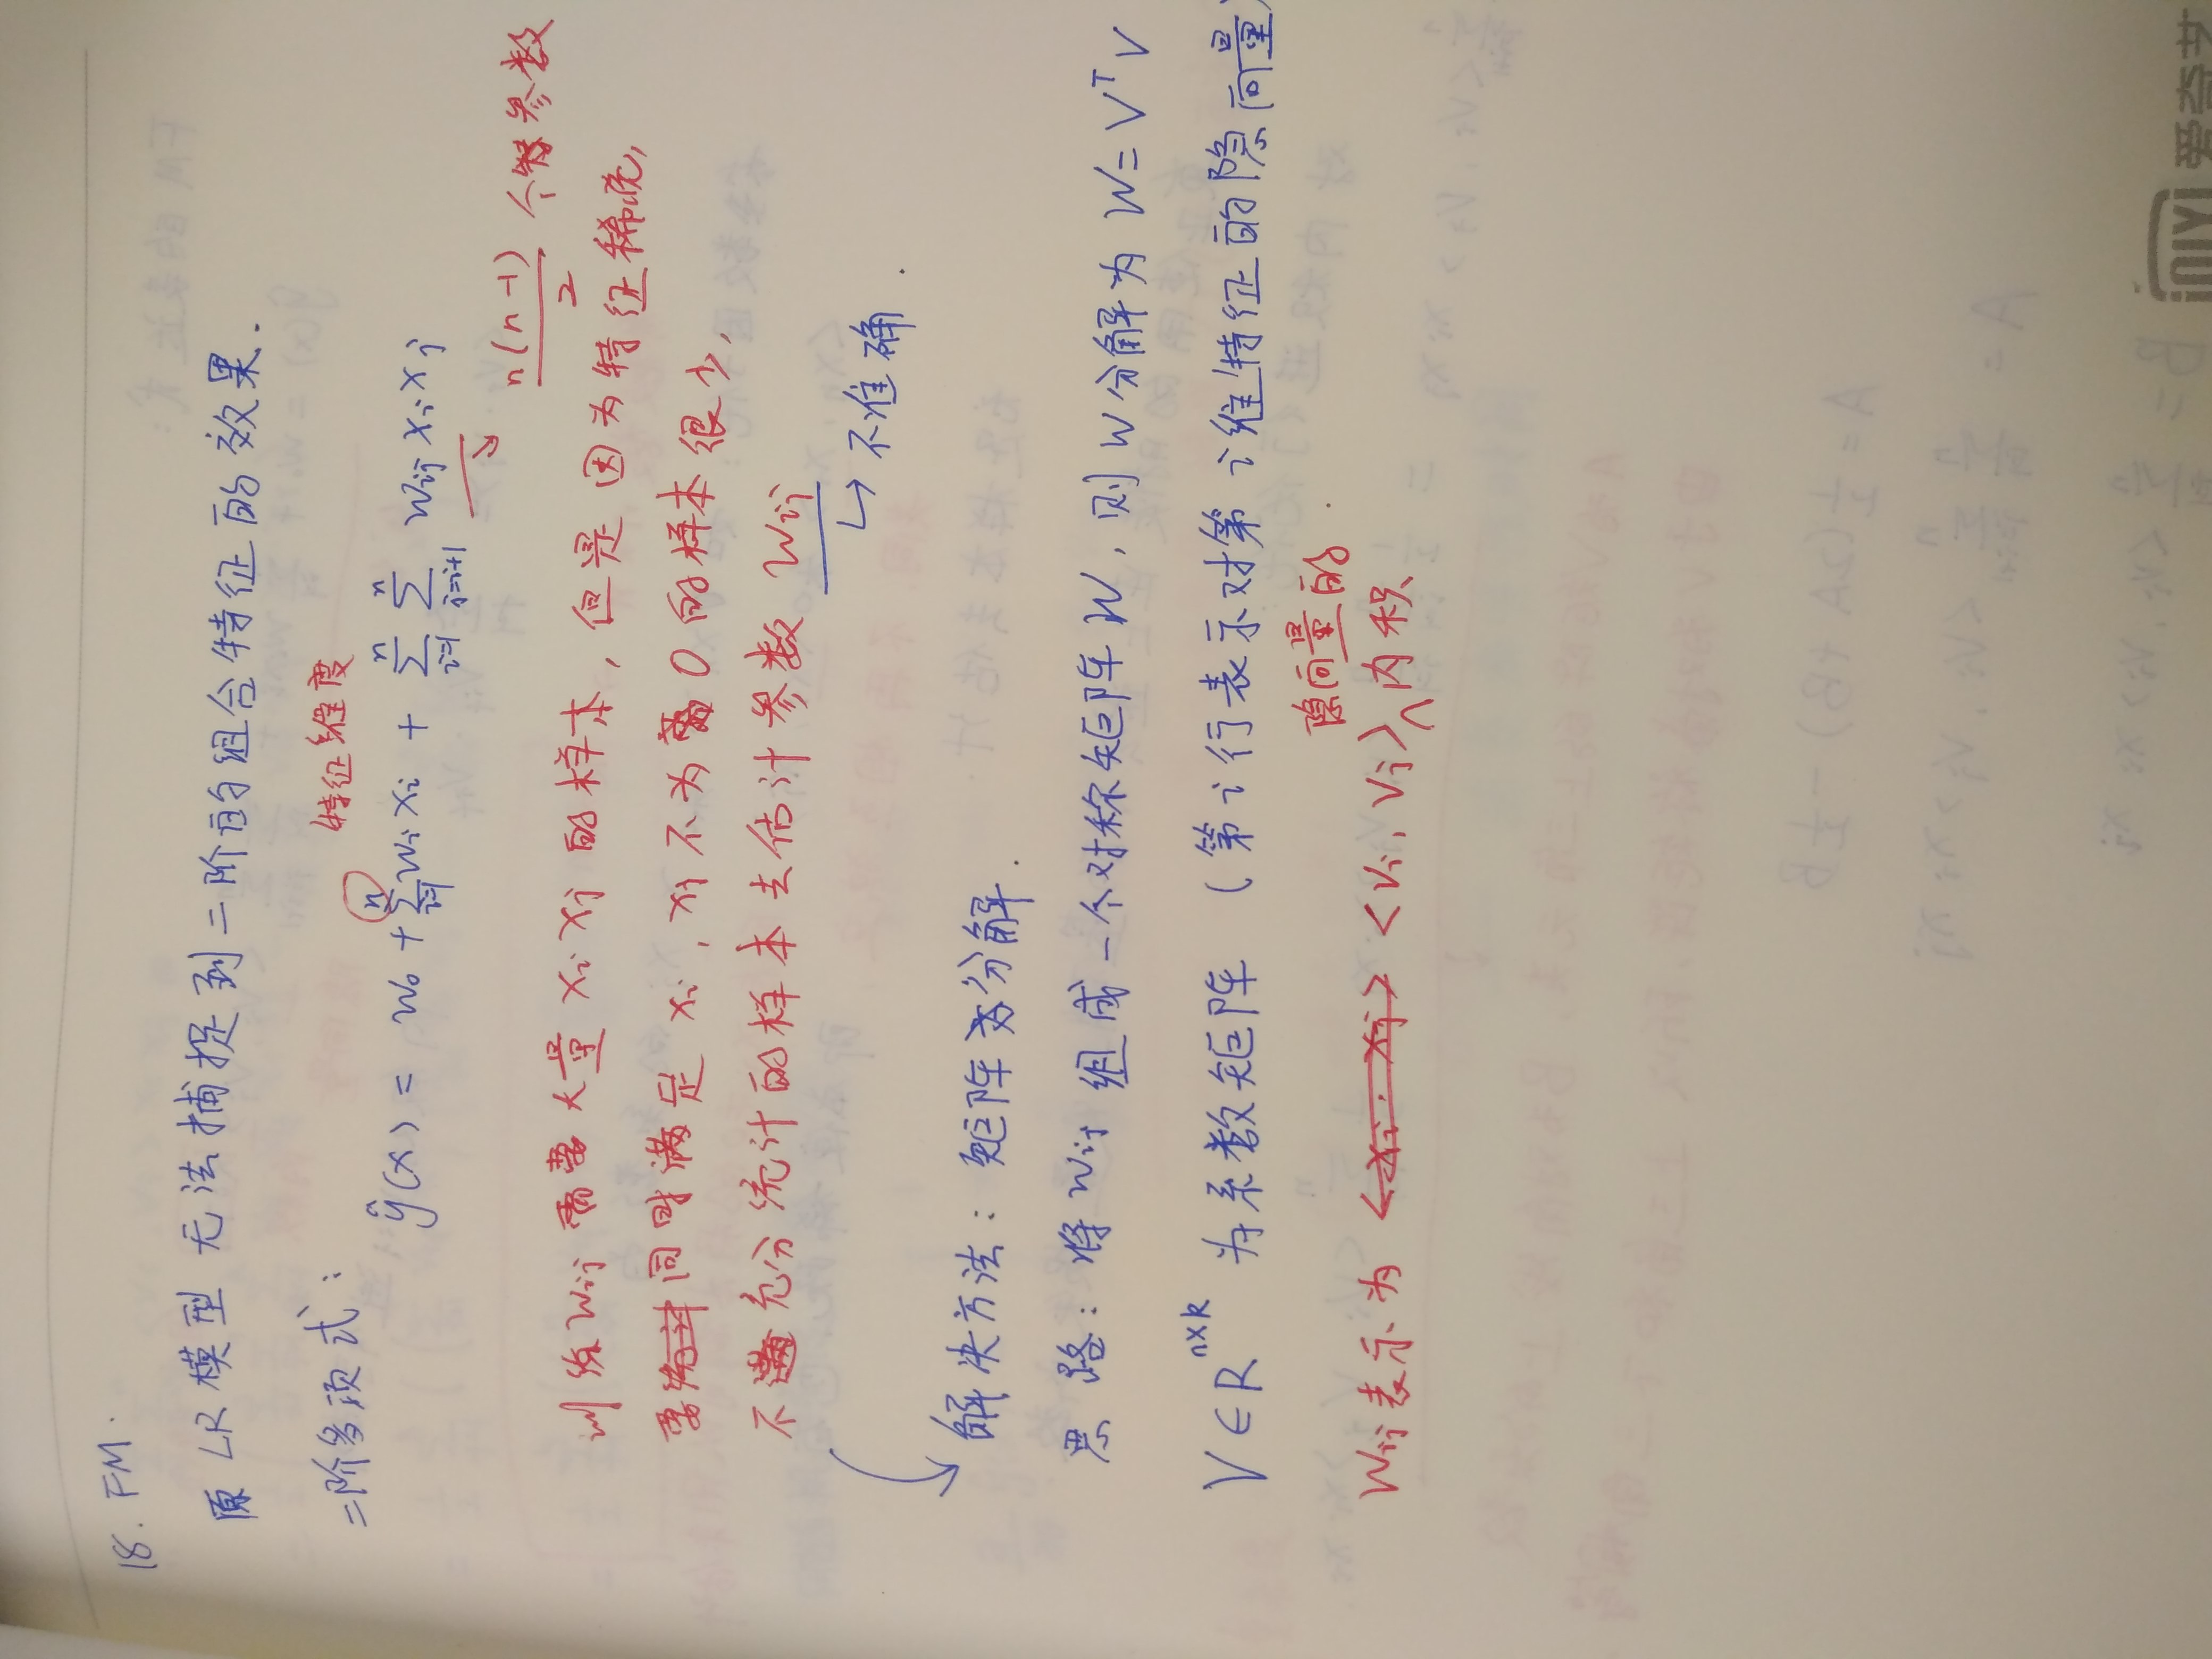 18. FM.
原 LR 模型 无法捕捉到二阶的组合特征的效果.
特征维度
二阶多项式: ŷ(x) = w₀ + ∑ⁿᵢ₌₁ wᵢxᵢ + ∑ⁿᵢ₌₁ ∑ⁿⱼ₌ᵢ₊₁ wᵢⱼ xᵢxⱼ
→ n(n-1)/2 个参数
训练wᵢⱼ 需要大量 xᵢ xⱼ 的样本, 但是因为特征稀疏,
要同时满足 xᵢ, xⱼ 不为 0 的样本很少,
不充分统计的样本去估计参数 wᵢⱼ
↳ 不准确.
解决方法: 矩阵分解.
思路: 将 wᵢⱼ 组成一个对称矩阵 W, 则 W 分解为 W = VᵀV
V ∈ Rⁿˣᵏ 为系数矩阵 (第 i 行表示对第 i 维特征的隐向量)
wᵢⱼ 表示为 <vᵢ, vⱼ> 隐向量的内积.
iQIYI 爱奇艺